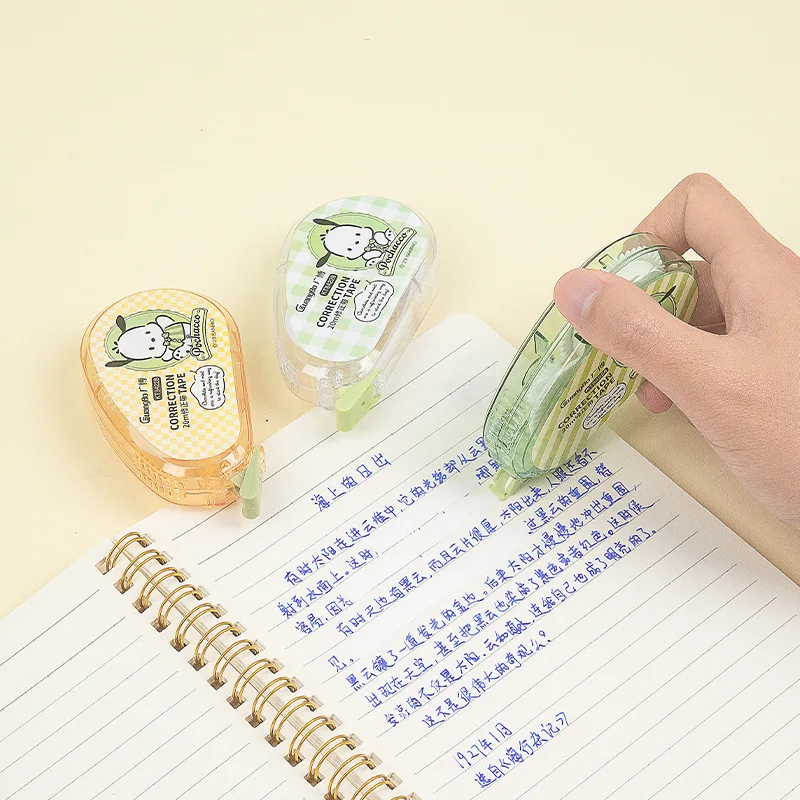 Pochacco
GuangBo广博
CORRECTION
20m修正带 TAPE
Pochacco
GuangBo广博
CORRECTION
20m修正带 TAPE
GuangBo
CORRECTION
20m修正带
海上的日出
有时太阳走进云堆中,它的光线却从云里
射到水面上。这时
容易,因为
有时天边有黑云,而且云片很厚,太阳出来,人眼还看不
见。 这黑云的重围,替
黑云镶了一道发光的金边。后来太阳才慢慢地冲出重围,
出现在天空,甚至把黑云也染成了紫色或者红色。这时候
发亮的不仅是太阳、云和海水,连我自己也成了明亮的了。
这不是很伟大的奇观么?
1927年1月
选自《海行杂记》